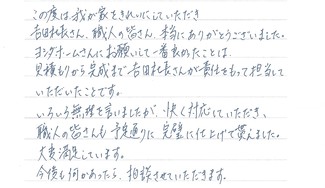 この度は我が家をきれいにしていただき
吉田社長さん、職人の皆さん、本当にありがとうございました。
ヨシダホームさんにお願いして一番良かったことは
見積もりから完成まで吉田社長さんが責任をもって担当して
いただいたことです。
いろいろ無理を言いましたが、快く対応していただき、
職人の皆さんも予定通りに完璧に仕上げて貰えました。
大変満足しています。
今後も何かあったら、相談させていただきます。